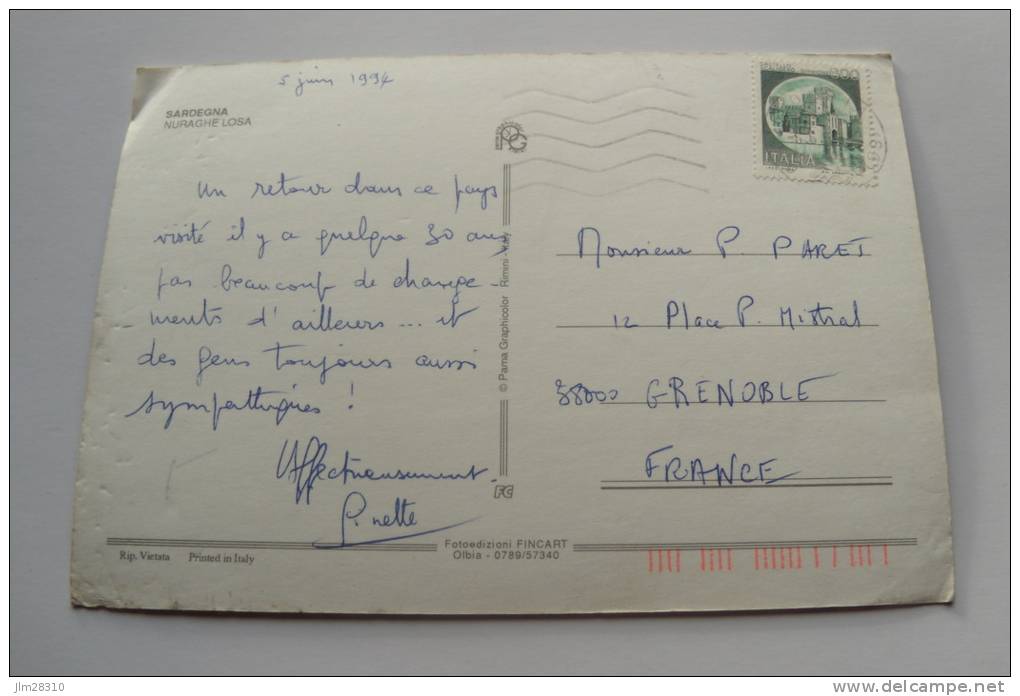 5 juin 1994
SARDEGNA
NURAGHE LOSA
Un retour dans ce pays
visité il y a quelque 30 ans
pas beaucoup de change-
ments d'ailleurs... et
des gens toujours aussi
sympathiques !
Affectueusement
Rip. Vietata Printed in Italy
© Pama Graphicolor Rimini - Italy
FC
Fotoedizioni FINCART
Olbia - 0789/57340
ITALIA
Monsieur P. PARET
12 Place P. Mistral
38000 GRENOBLE
FRANCE
jlm28310
www.delcampe.net